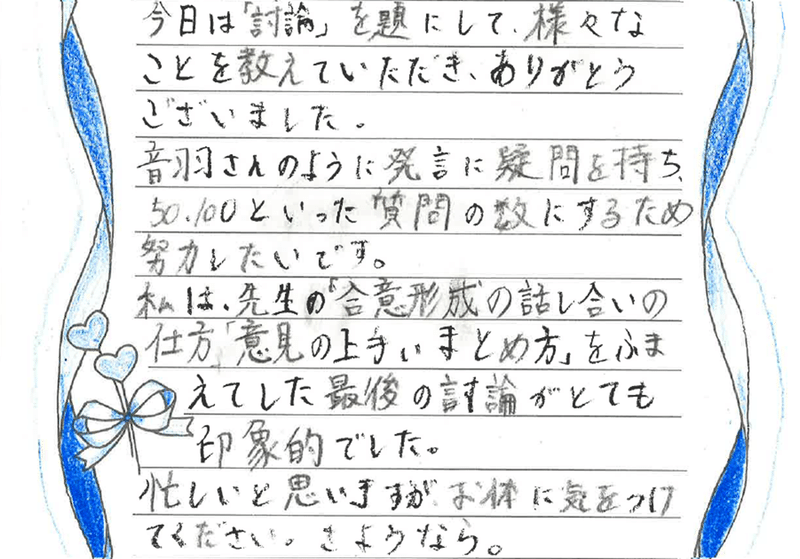 今日は「討論」を題にして、様々な
ことを教えていただき、ありがとう
ございました。
音羽さんのように発言に疑問を持ち、
50.100といった質問の数にするため
努力したいです。
私は、先生の「合意形成の話し合いの
仕方「意見の上手いまとめ方」をふま
えてした最後の討論がとても
印象的でした。
忙しいと思いますが、お体に気をつけ
てください。さようなら。